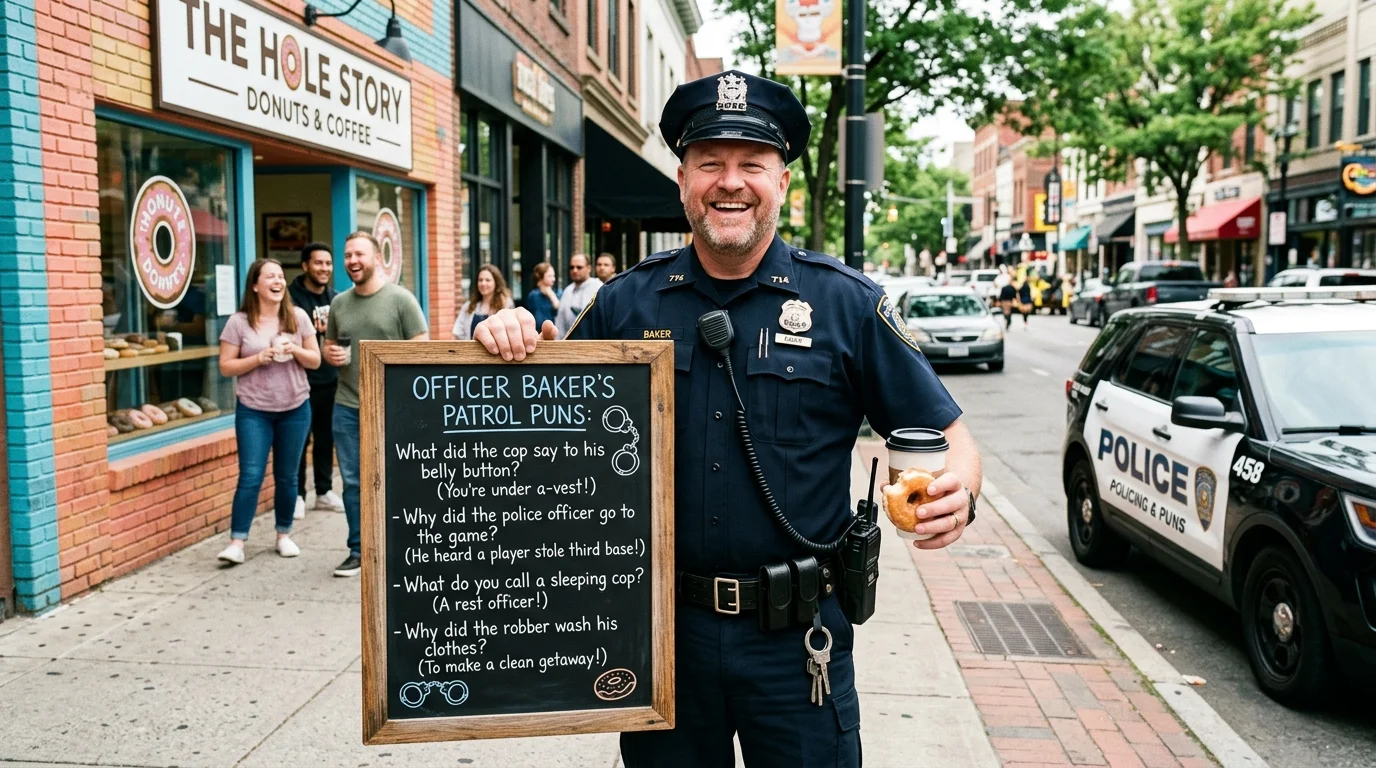 THE HOLE STORY
DONUTS & COFFEE
OFFICER BAKER'S
PATROL PUNS:
What did the cop say to his
belly button?
(You're under a-vest!)
- Why did the police officer go to
the game?
(He heard a player stole third base!)
- What do you call a sleeping cop?
(A rest officer!)
- Why did the robber wash his
clothes?
(To make a clean getaway!)
BAKER
POLICE
POLICING & PUNS
458